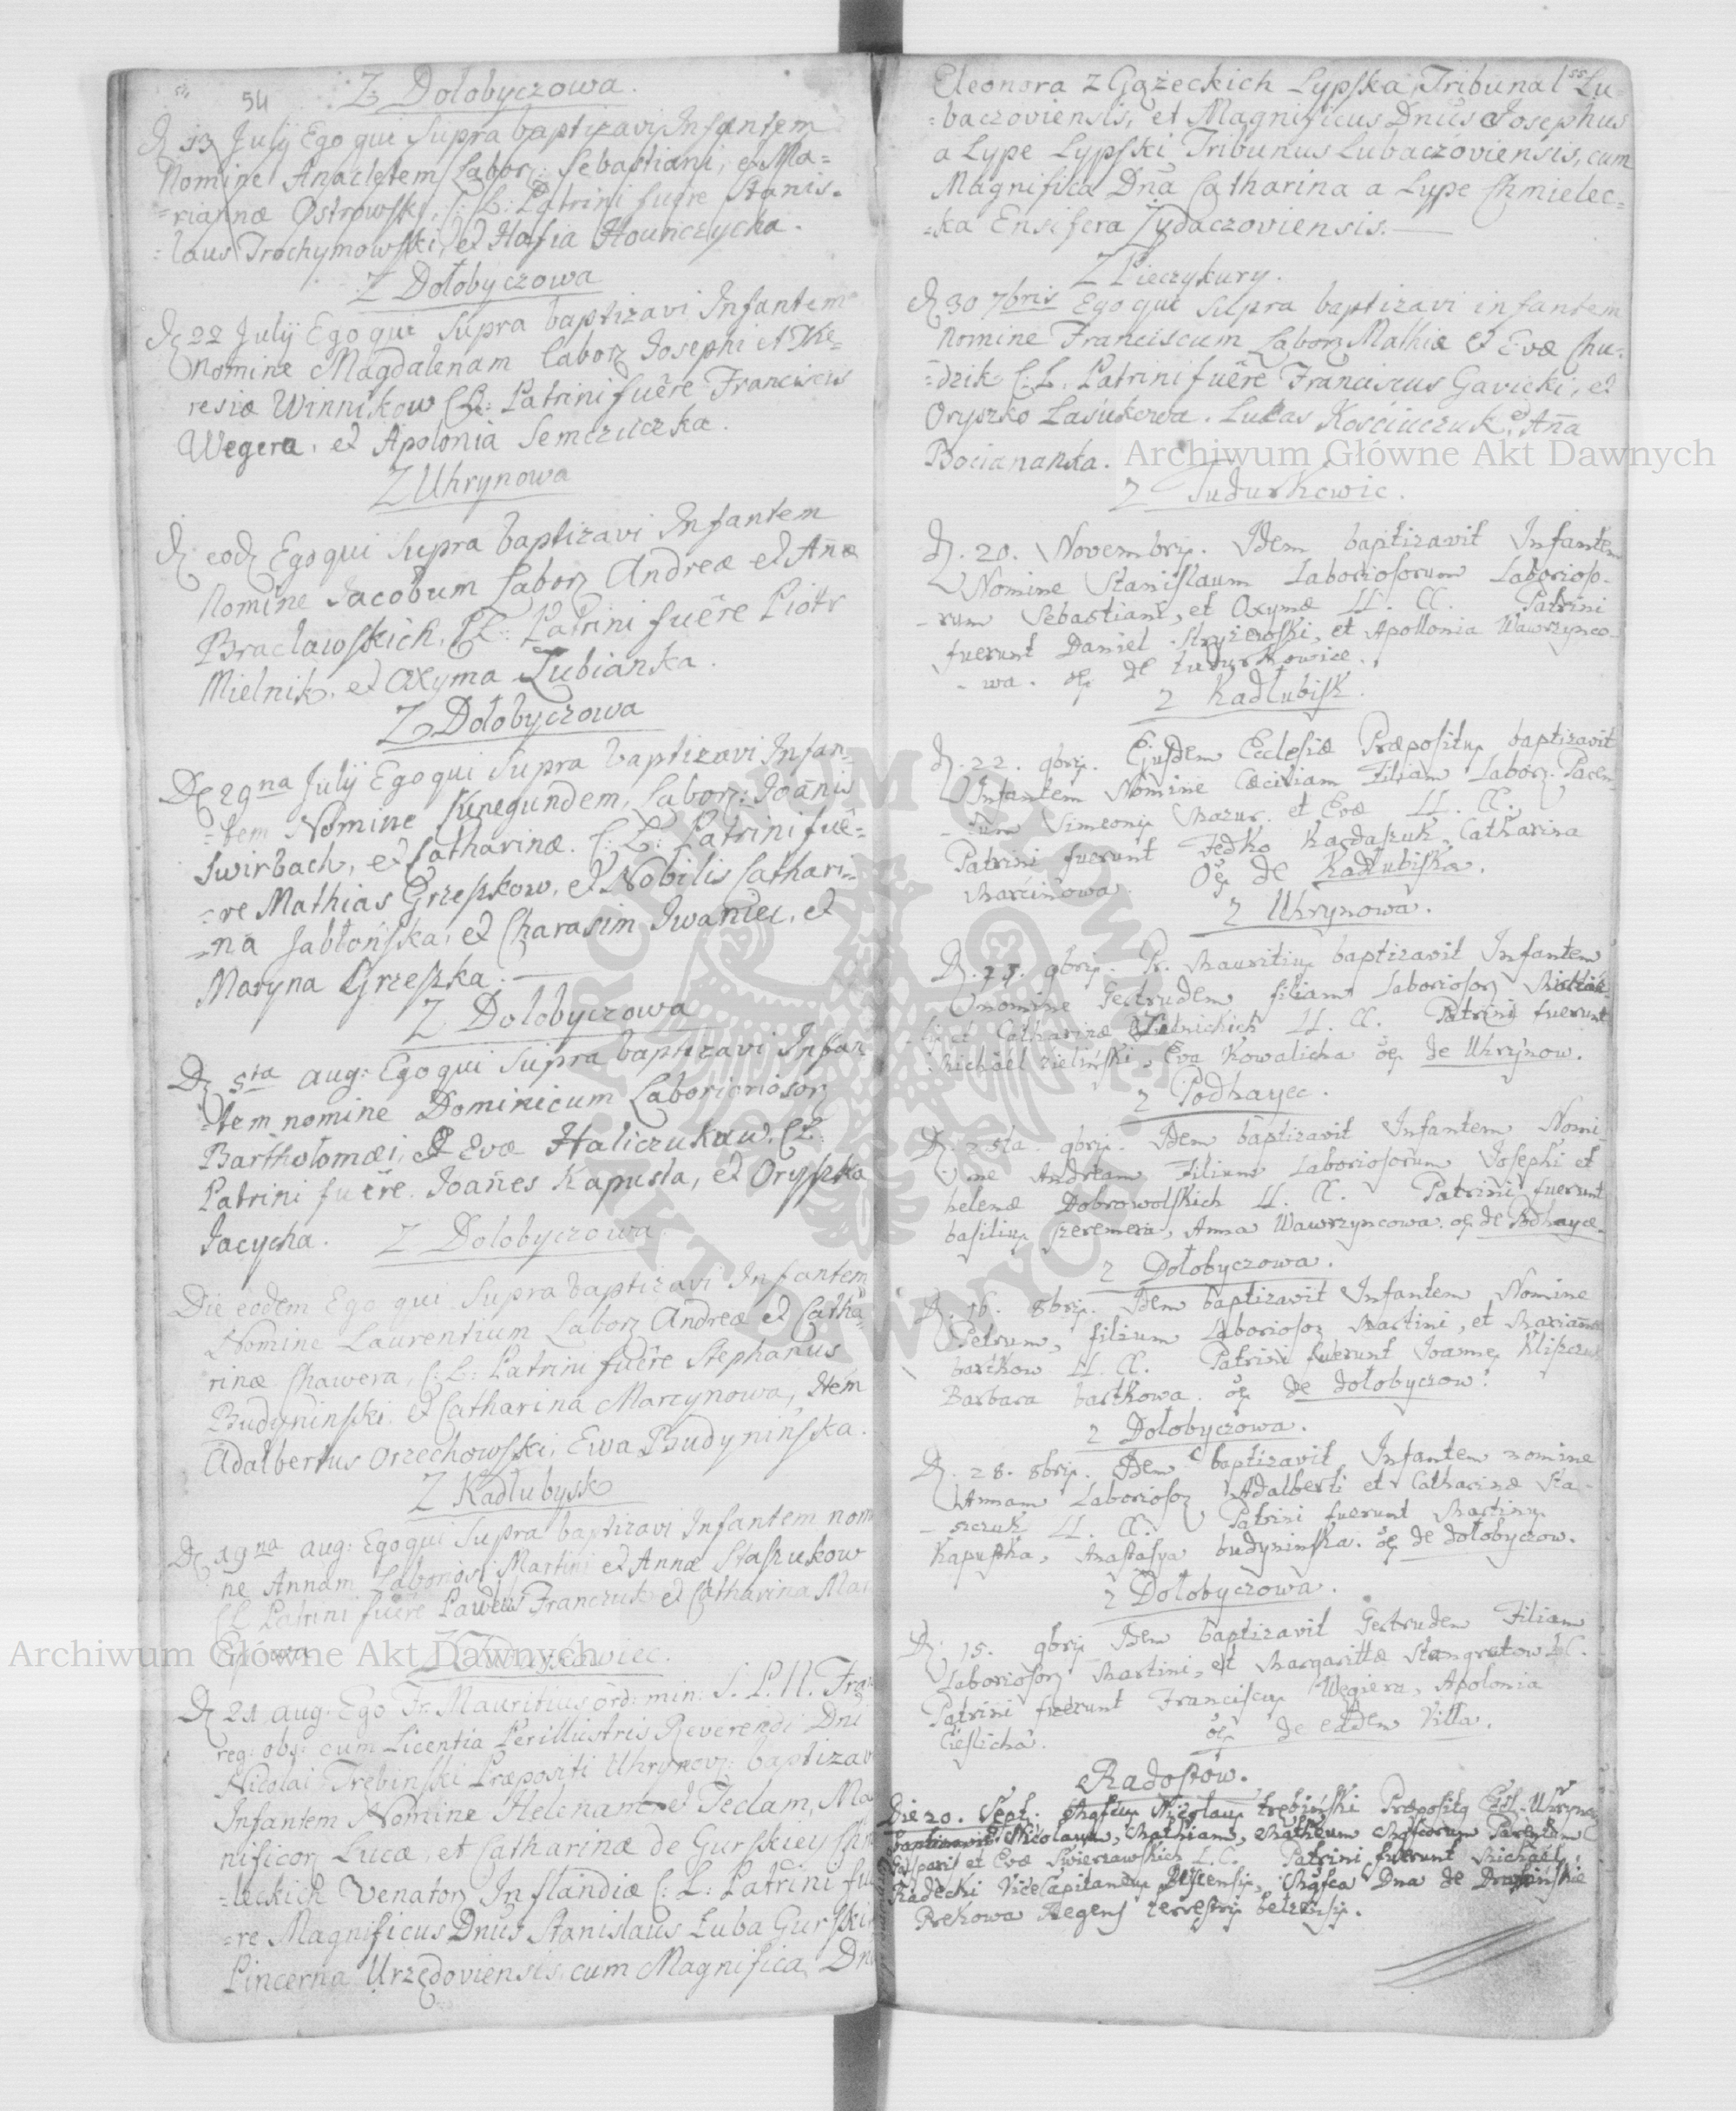 54
Z Dołobyczowa.
D 13 July Ego qui Supra baptizavi Infantem
Nomine Anacletem Labor: Sebastiani, et Ma=
=riannæ Ostrowski, C: L: Patrini fuêre Stanis=
=laus Trochymowski, et Hafia Hounczycha.
Z Dołobyczowa
D 22 July Ego qui Supra baptizavi Infantem
Nomine Magdalenam Labor Josephi et The=
resiæ Winnikow C L: Patrini fuêre Franciscus
Wegera, et Apolonia Semczuczka.
Z Uhrynowa
D eod Ego qui Supra baptizavi Infantem
Nomine Jacobum Labor Andreæ et Añæ
Bracławskich, C L: Patrini fuêre Piotr
Mielnik, et Oxyma Zubianka.
Z Dołobyczowa
D 29na July Ego qui Supra baptizavi Infan=
=tem Nomine Kunegundem, Labor: Joañis
Swirbach, et Catharinæ. C: L: Patrini fuê=
=re Mathias Grzeszkow, et Nobilis Cathari=
=na Jabłońska, et Charasim Iwaniec, et
Maryna Grzeszka.
Z Dołobyczowa
D 5ta aug: Ego qui Supra baptizavi Infan
=tem nomine Dominicum Laboriorioso
Bartholomæi, et Evæ Haliczukow, C L:
Patrini fuêre. Joañes Kapusta, et Oryszka
Jacycha.
Z Dołobyczowa
Die eodem Ego qui Supra baptizavi Infantem
Nomine Laurentium Labor Andreæ et Catha
rinæ Chawera, C: L: Patrini fuêre Stephanus
Budyninski, et Catharina Marcynowa, Item
Adalbertus Orzechowski, Ewa Budynińska.
Z Kadłubysk
D 19na aug: Ego qui Supra baptizavi Infantem nom
ne Annam Laboriosi Martini et Annæ Staszukow
C L Patrini fuêre Pawelus Franczuk et Catharina Ma
D 21 aug. Ego Fr. Mauritius ord: min: S. P. N. Fra
reg: obs: cum Licentia Perillustris Reverendi Dni
Nicolai Trębinski Præpositi Uhrynov: baptizav
Infantem Nomine Helenam et Teclam, Ma
nificor Lucæ, et Catharinæ de Gurskiey Chm
=leckich Venator Inflandiæ C: L: Patrini fu
=re Magnificus Dnus Stanislaus Łuba Gurski
Pincerna Urzędoviensis, cum Magnifica Dn
Eleonora z Gązeckich Lypska, Tribunal Lu=
=baczoviensis, et Magnificus Dnus Josephus
a Lype Lypski Tribunus Lubaczoviensis, cum
Magnifica Dña Catharina a Lype Chmielec=
=ka Ensifera Żydaczoviensis.
Z Pieczykury.
D 30 7bris Ego qui Supra baptizavi infantem
Nomine Franciscum Labor Mathiæ et Evæ Chu=
=dzik C: L. Patrini fuêre Franciscus Gavicki, et
Oryszko Łasiukowa. Lucas Kościuczuk et Aña
Bociananka.
Archiwum Główne Akt Dawnych
Z Tudurkowic.
D. 20. Novembris. Idem baptizavit Infantem
Nomine Stanislaum Laboriosorum Laborioso-
-rum Sebastiani, et Oxymæ LL. CC. Patrini
fuerunt Daniel Stryzewski, et Apollonia Wawrzynco-
-wa. oes de Tudurkowice.
Z Kadłubisk.
D. 22. 9bris. Ejusdem Ecclesiæ Præpositus baptizavit
Infantem Nomine Cæciliam Filiam Labor. Paren-
-tum Simeonis Mazur. et Evæ LL. CC.
Patrini fuerunt Fedko Kardaszuk, Catharina
Marcinowa. Oes de Kadłubiska.
Z Uhrynowa.
D. 25. 9bris. Pr. Mauritius baptizavit Infantem
nomine Gertrudem filiam Laborioso
et Catharinæ LL. CC. Patrini fuerunt
Michael Zieliński, Eva Kowalicha oes de Uhrynow.
Z Podhayec.
D. 25ta 9bris. Idem baptizavit Infantem Nomi-
ne Andream Filium Laboriosorum Josephi et
helenæ Dobrowolskich LL. CC. Patrini fuerunt
basilius szeremeta, Anna Wawrzyncowa. oes de Podhayce.
Z Dołobyczowa.
D. 16. 8bris. Idem baptizavit Infantem Nomine
Petrum, filium Laborioso Martini, et Mariannæ
bartkow LL. CC. Patrini fuerunt Joannes Kliszczuk
Barbara bartkowa. oes de dołobyczow.
Z Dołobyczowa.
D. 28. 8bris. Idem baptizavit Infantem nomine
Annam Laborioso Adalberti et Catharinæ Sta-
-szczuk LL. CC. Patrini fuerunt Martinus
Kapustka, Anastasya budyninska. oes de dołobyczow.
Z Dołobyczowa.
D. 15. 9bris Idem baptizavit Gertrudem Filiam
Laborioso Martini, et Margarittæ Stangretow LC.
Patrini fuerunt Franciscus Węgiera, Apolonia
Cieślicha. oes de eadem Villa.
Radostów.
Die 20. Sept. Nicolaus Trębiński Præpositus Uhryno
baptizavit Nicolaum, Mathiam, Matheum Parentum
Gaspari et Evæ Swierzawskich L. C. Patrini fuerunt Michael
Radecki ViceCapitaneus Dna de
Prekowa Regens terrestris belzensis.
Archiwum Główne Akt Dawnych
ARCHIWUM GŁÓWNE
AKT DAWNYCH